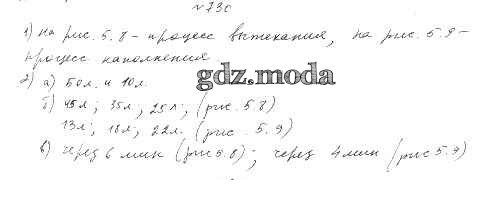 №730
1) На рис. 5.8 - процесс вытекания, на рис. 5.9 -
процесс наполнения
gdz.moda
2) а) 50л. и 10л.
б) 45л; 35л; 25л; (рис. 5.8)
13л; 18л; 22л. (рис. 5.9)
в) через 6 мин (рис 5.8); через 4 мин (рис 5.9)